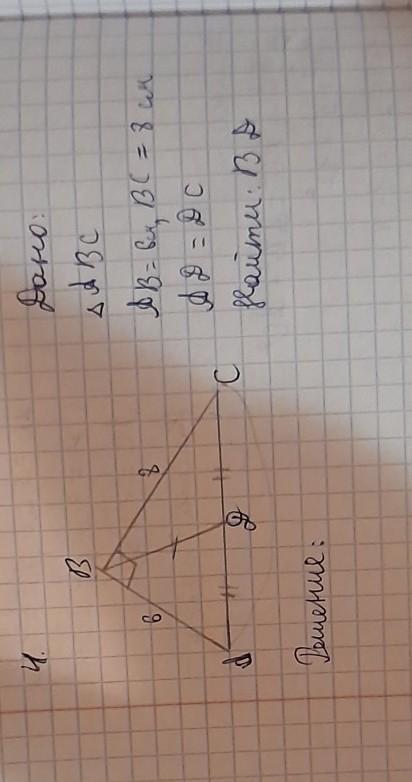 4.
B
6
8
A
D
C
Дано:
△ABC
AB=6см, BC=8 см
AD=DC
Найти: BD
Решение: